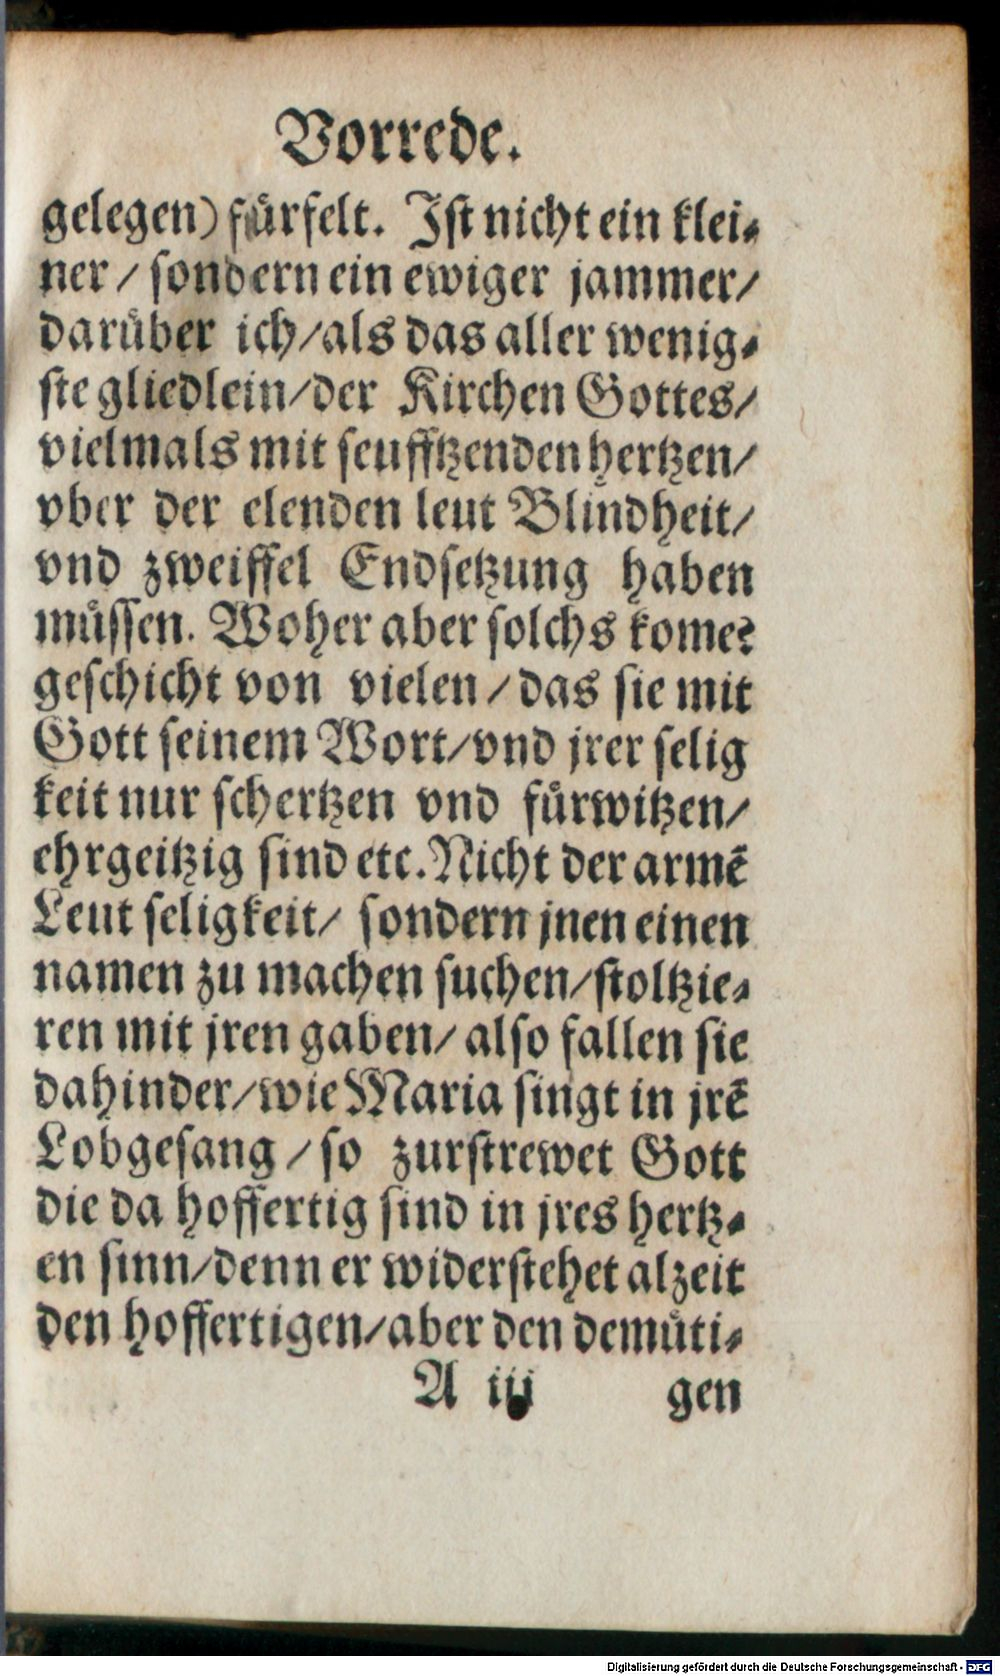 Vorrede.
gelegen) fuͤrfelt. Jst nicht ein klei⸗
ner / sondern ein ewiger jammer/
daruͤber ich/als das aller wenig⸗
ste gliedlein/der Kirchen Gottes/
vielmals mit seufftzenden hertzen/
vber der elenden leut Blindheit/
vnd zweiffel Endsetzung haben
muͤssen. Woher aber solchs kome?
geschicht von vielen / das sie mit
Gott seinem Wort/vnd jrer selig
keit nur schertzen vnd fuͤrwitzen/
ehrgeitzig sind etc. Nicht der armē
Leut seligkeit/ sondern jnen einen
namen zu machen suchen/stoltzie⸗
ren mit jren gaben/ also fallen sie
dahinder/wie Maria singt in jrē
Lobgesang / so zurstrewet Gott
die da hoffertig sind in jres hertz⸗
en sinn/denn er widerstehet alzeit
den hoffertigen/aber den demuͤti⸗
A iij gen
Digitalisierung gefördert durch die Deutsche Forschungsgemeinschaft - DFG